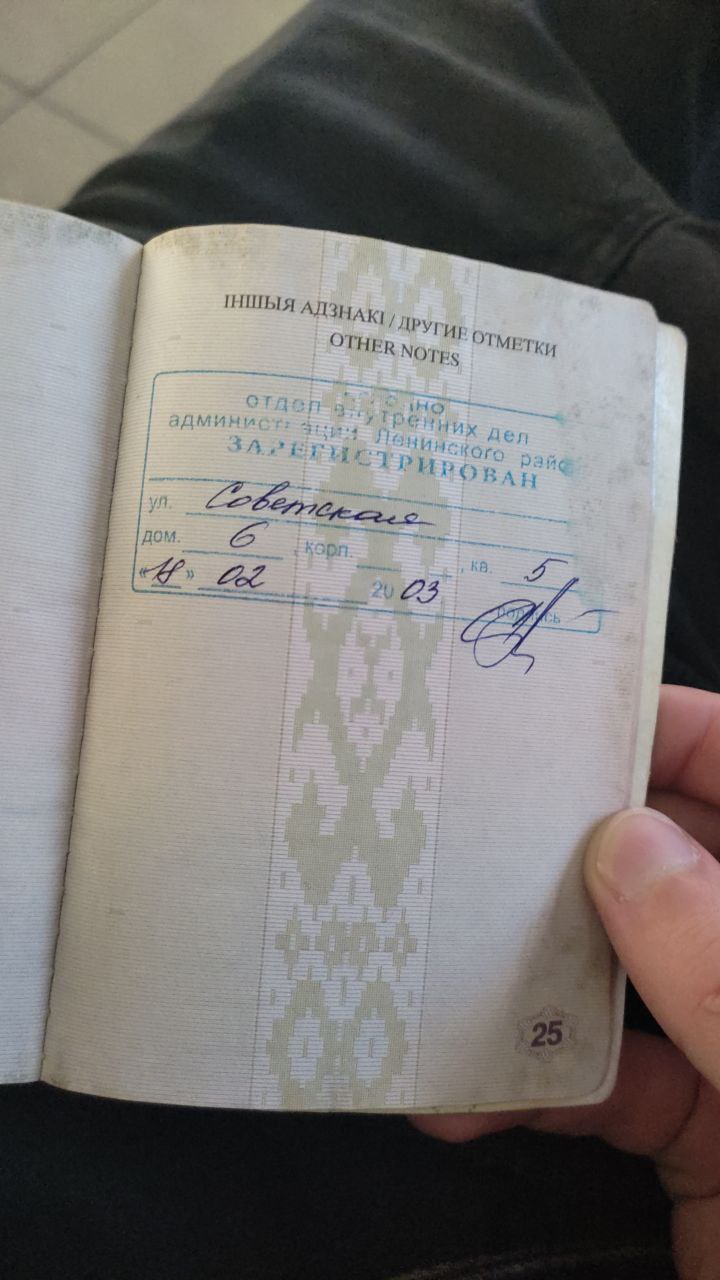 ІНШЫЯ АДЗНАКІ / ДРУГИЕ ОТМЕТКИ
OTHER NOTES
отдел внутренних дел
администрации Ленинского
ЗАРЕГИСТРИРОВАН
ул. Советская
дом. 6, корп. , кв. 5
02 2003 подпись
25